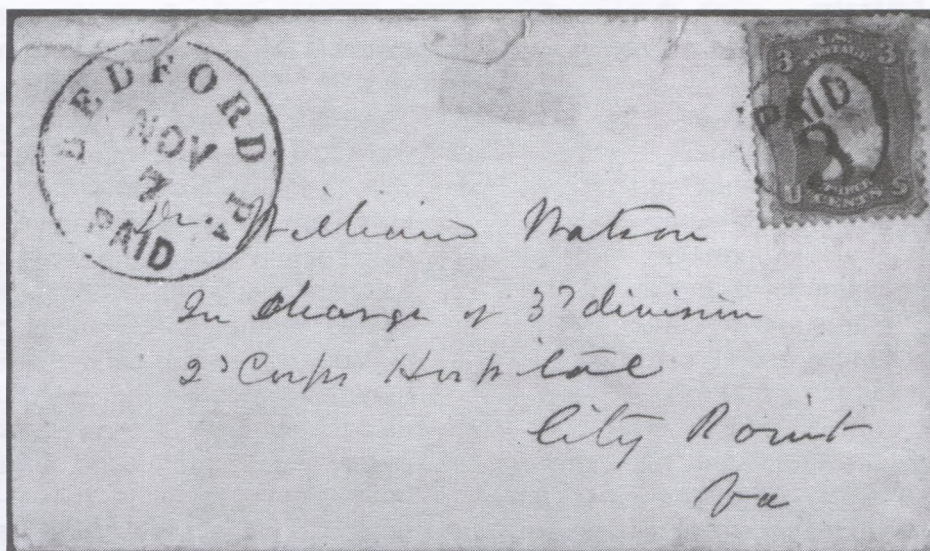 BEDFORD PA
NOV
7
PAID
U.S. POSTAGE
3 3
PAID
3
U S
THREE CENTS
Dr. William Watson
In charge of 3d division
2d Corps Hospital
City Point
Va